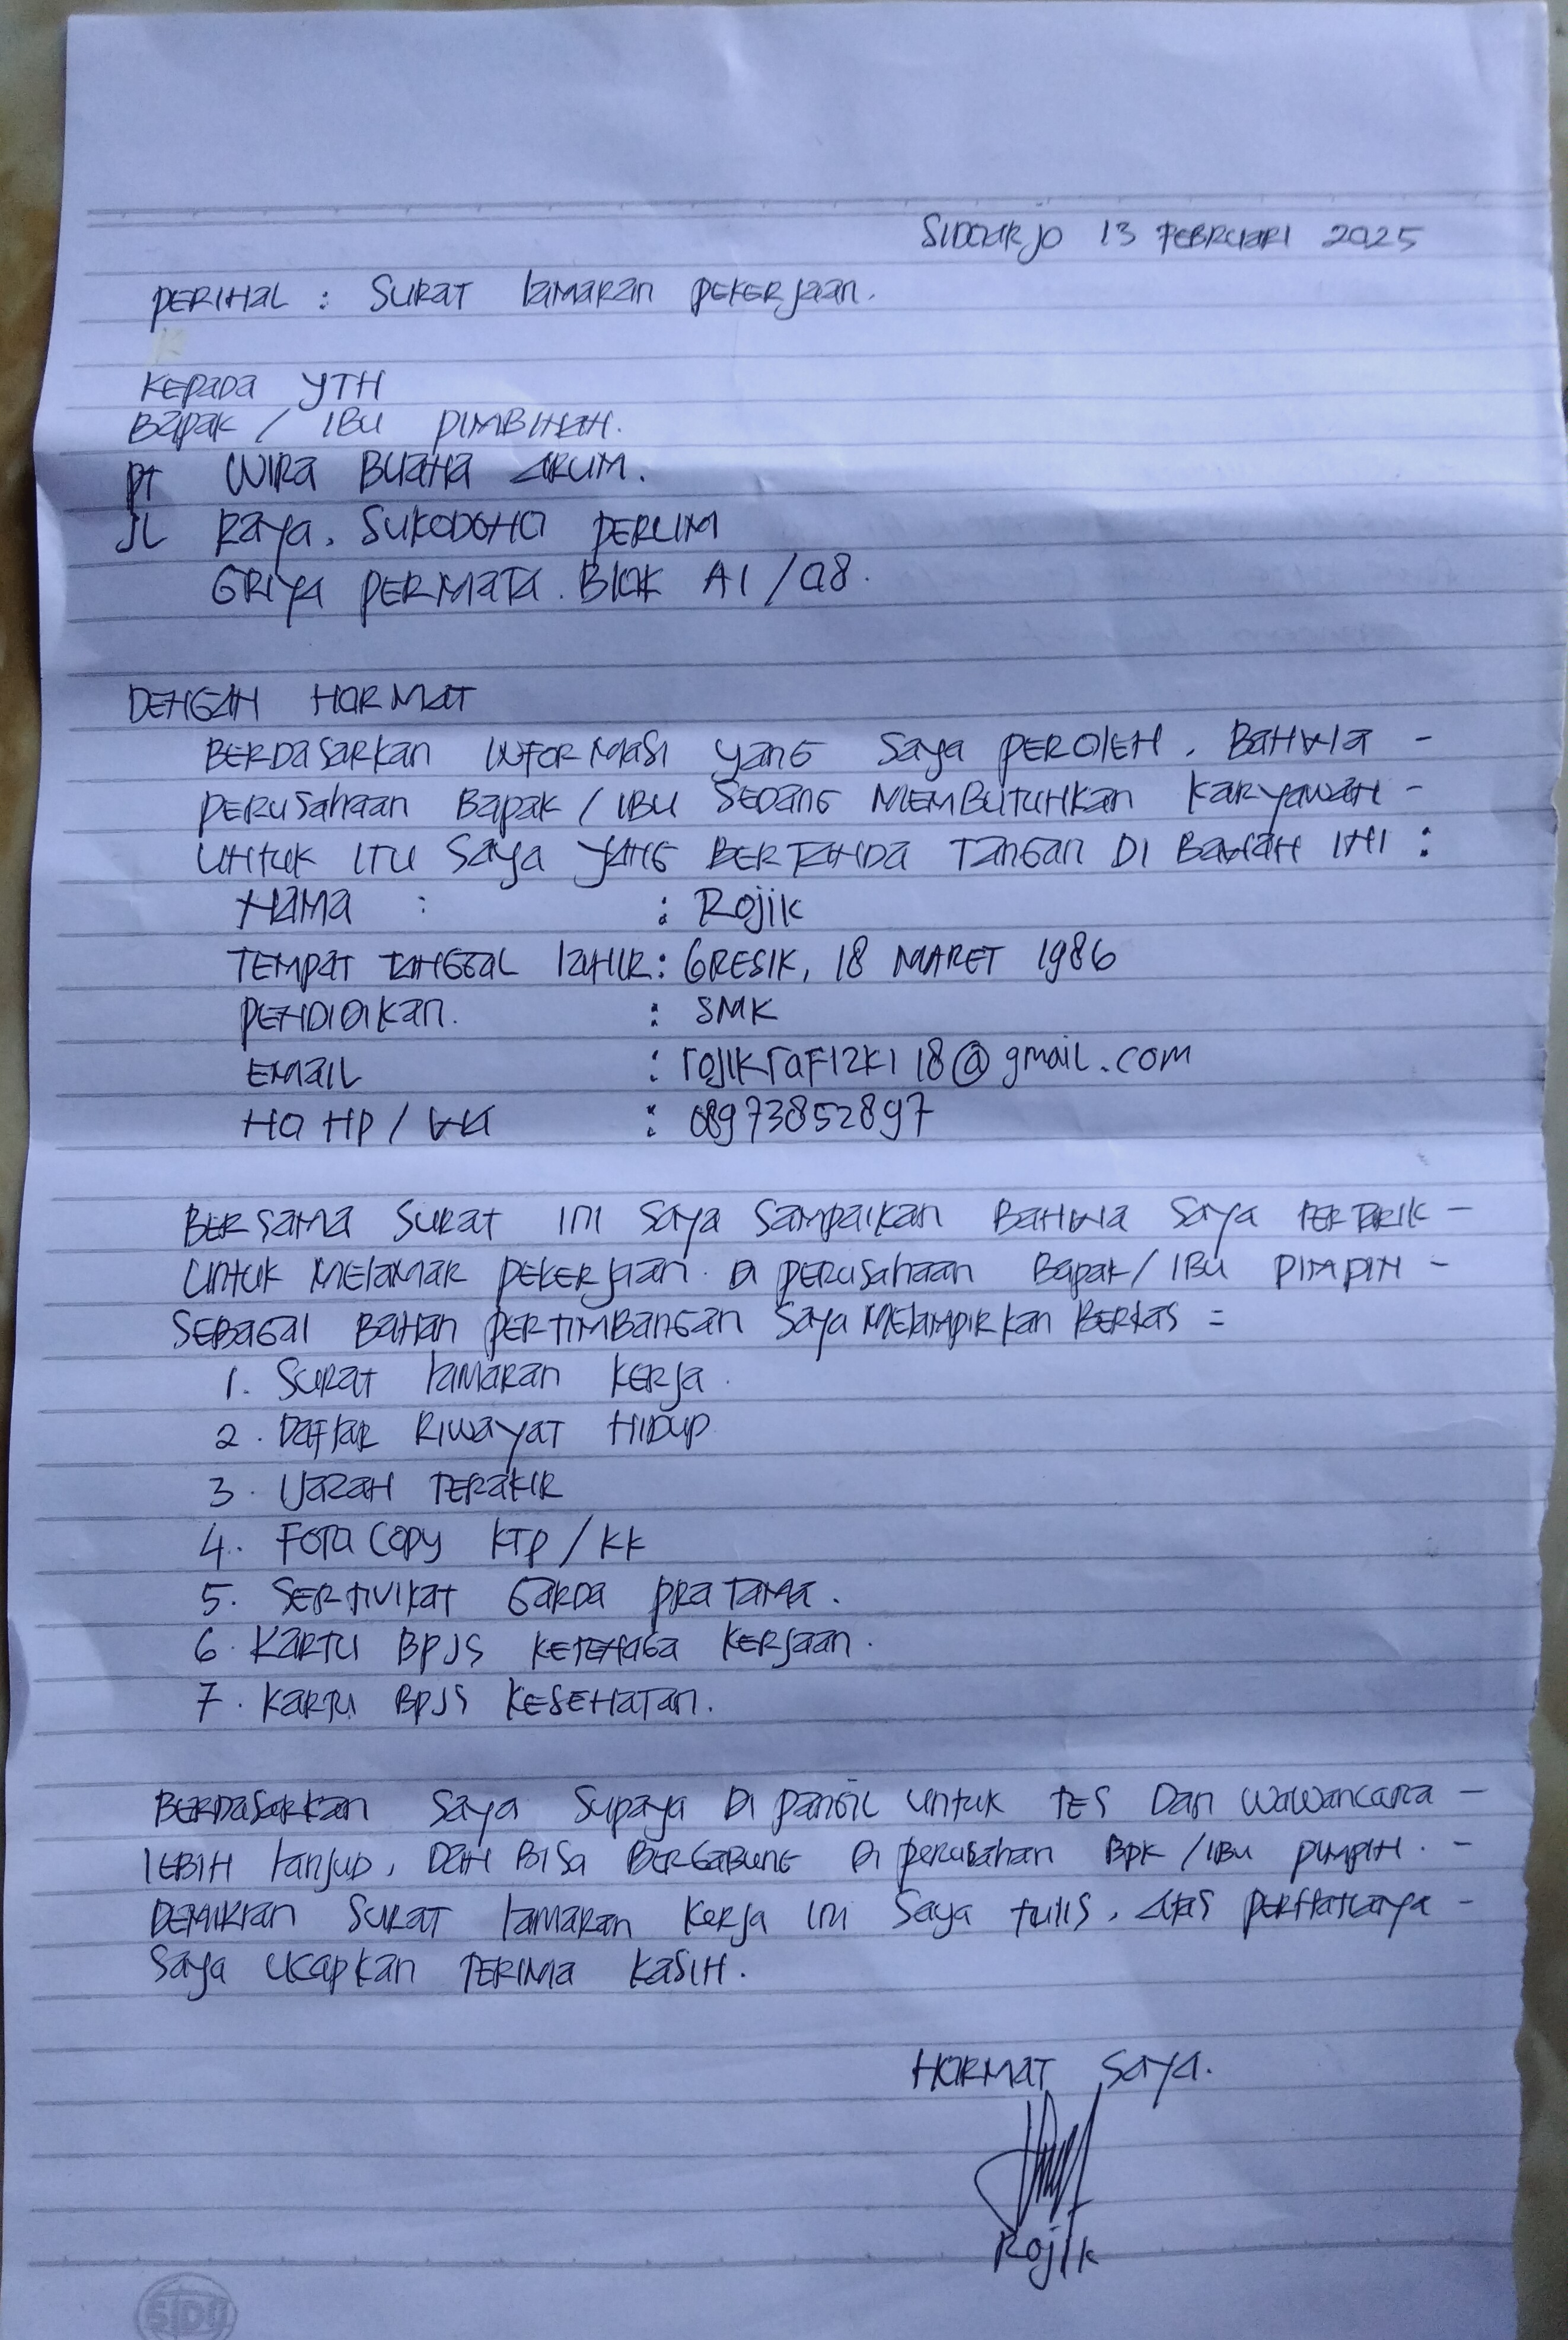 SIDOARJO 13 FEBRUARI 2025
PERIHAL : SURAT LAMARAN PEKERJAAN.
KEPADA YTH
BAPAK / IBU PIMBINAN.
PT WIRA BUANA ARUM.
JL RAYA. SUKODONO PERUM
GRIYA PERMATA. BLOK A1/08.
DENGAN HORMAT
BERDASARKAN INFORMASI YANG SAYA PEROLEH. BAHWA -
PERUSAHAAN BAPAK / IBU SEDANG MEMBUTUHKAN KARYAWAN -
UNTUK ITU SAYA YANG BERTANDA TANGAN DI BAWAH INI :
NAMA : : ROJIK
TEMPAT TANGGAL LAHIR : GRESIK, 18 MARET 1986
PENDIDIKAN. : SMK
EMAIL : rojikrafizki18@gmail.com
NO HP / WA : 08973852897
BERSAMA SURAT INI SAYA SAMPAIKAN BAHWA SAYA TERTARIK -
UNTUK MELAMAR PEKERJAAN. DI PERUSAHAAN BAPAK/IBU PIMPIN -
SEBAGAI BAHAN PERTIMBANGAN SAYA MELAMPIRKAN BERKAS =
1. SURAT LAMARAN KERJA.
2. DAFTAR RIWAYAT HIDUP
3. IJAZAH TERAKIR
4. FOTO COPY KTP / KK
5. SERTIVIKAT GARDA PRATAMA.
6. KARTU BPJS KETENAGA KERJAAN.
7. KARTU BPJS KESEHATAN.
BERDASARKAN SAYA SUPAYA DI PANGIL UNTUK TES DAN WAWANCARA -
LEBIH LANJUD, DAN BISA BERGABUNG DI PERUSAHAN BPK / IBU PIMPIN. -
DEMIKIAN SURAT LAMARAN KERJA INI SAYA TULIS, ATAS PERHATIANYA -
SAYA UCAPKAN TERIMA KASIH.
HORMAT SAYA.
ROJIK
SIDU